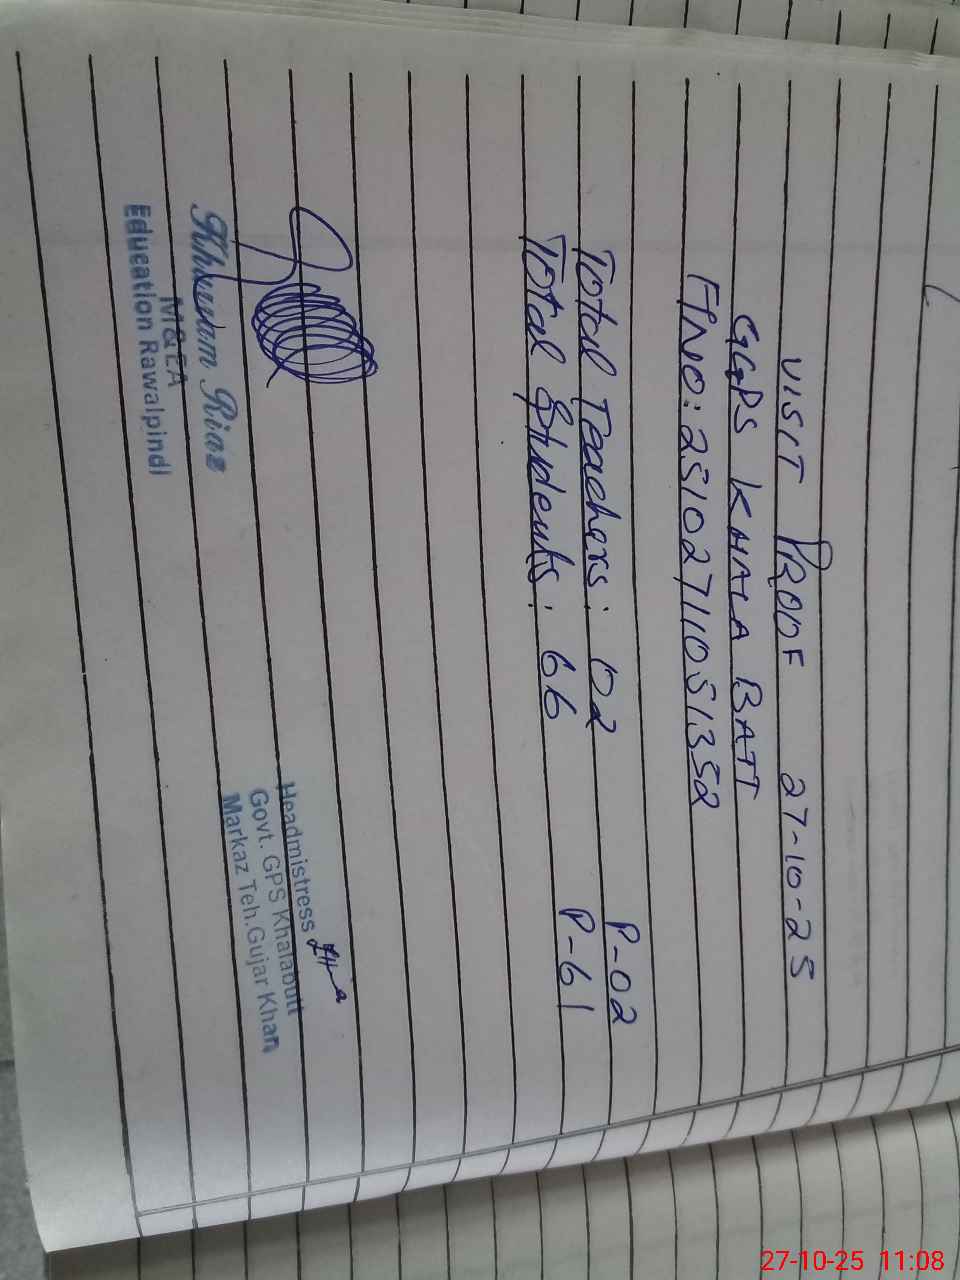 VISIT PROOF 27-10-25
GGPS KHALA BATT
FINO: 25102711051352
Total Teachers: 02 P-02
Total Students: 66 P-61
Headmistress
Govt. GPS Khalabutt
Markaz Teh.Gujar Khan
Khurram Riaz
M&EA
Education Rawalpindi
27-10-25 11:08